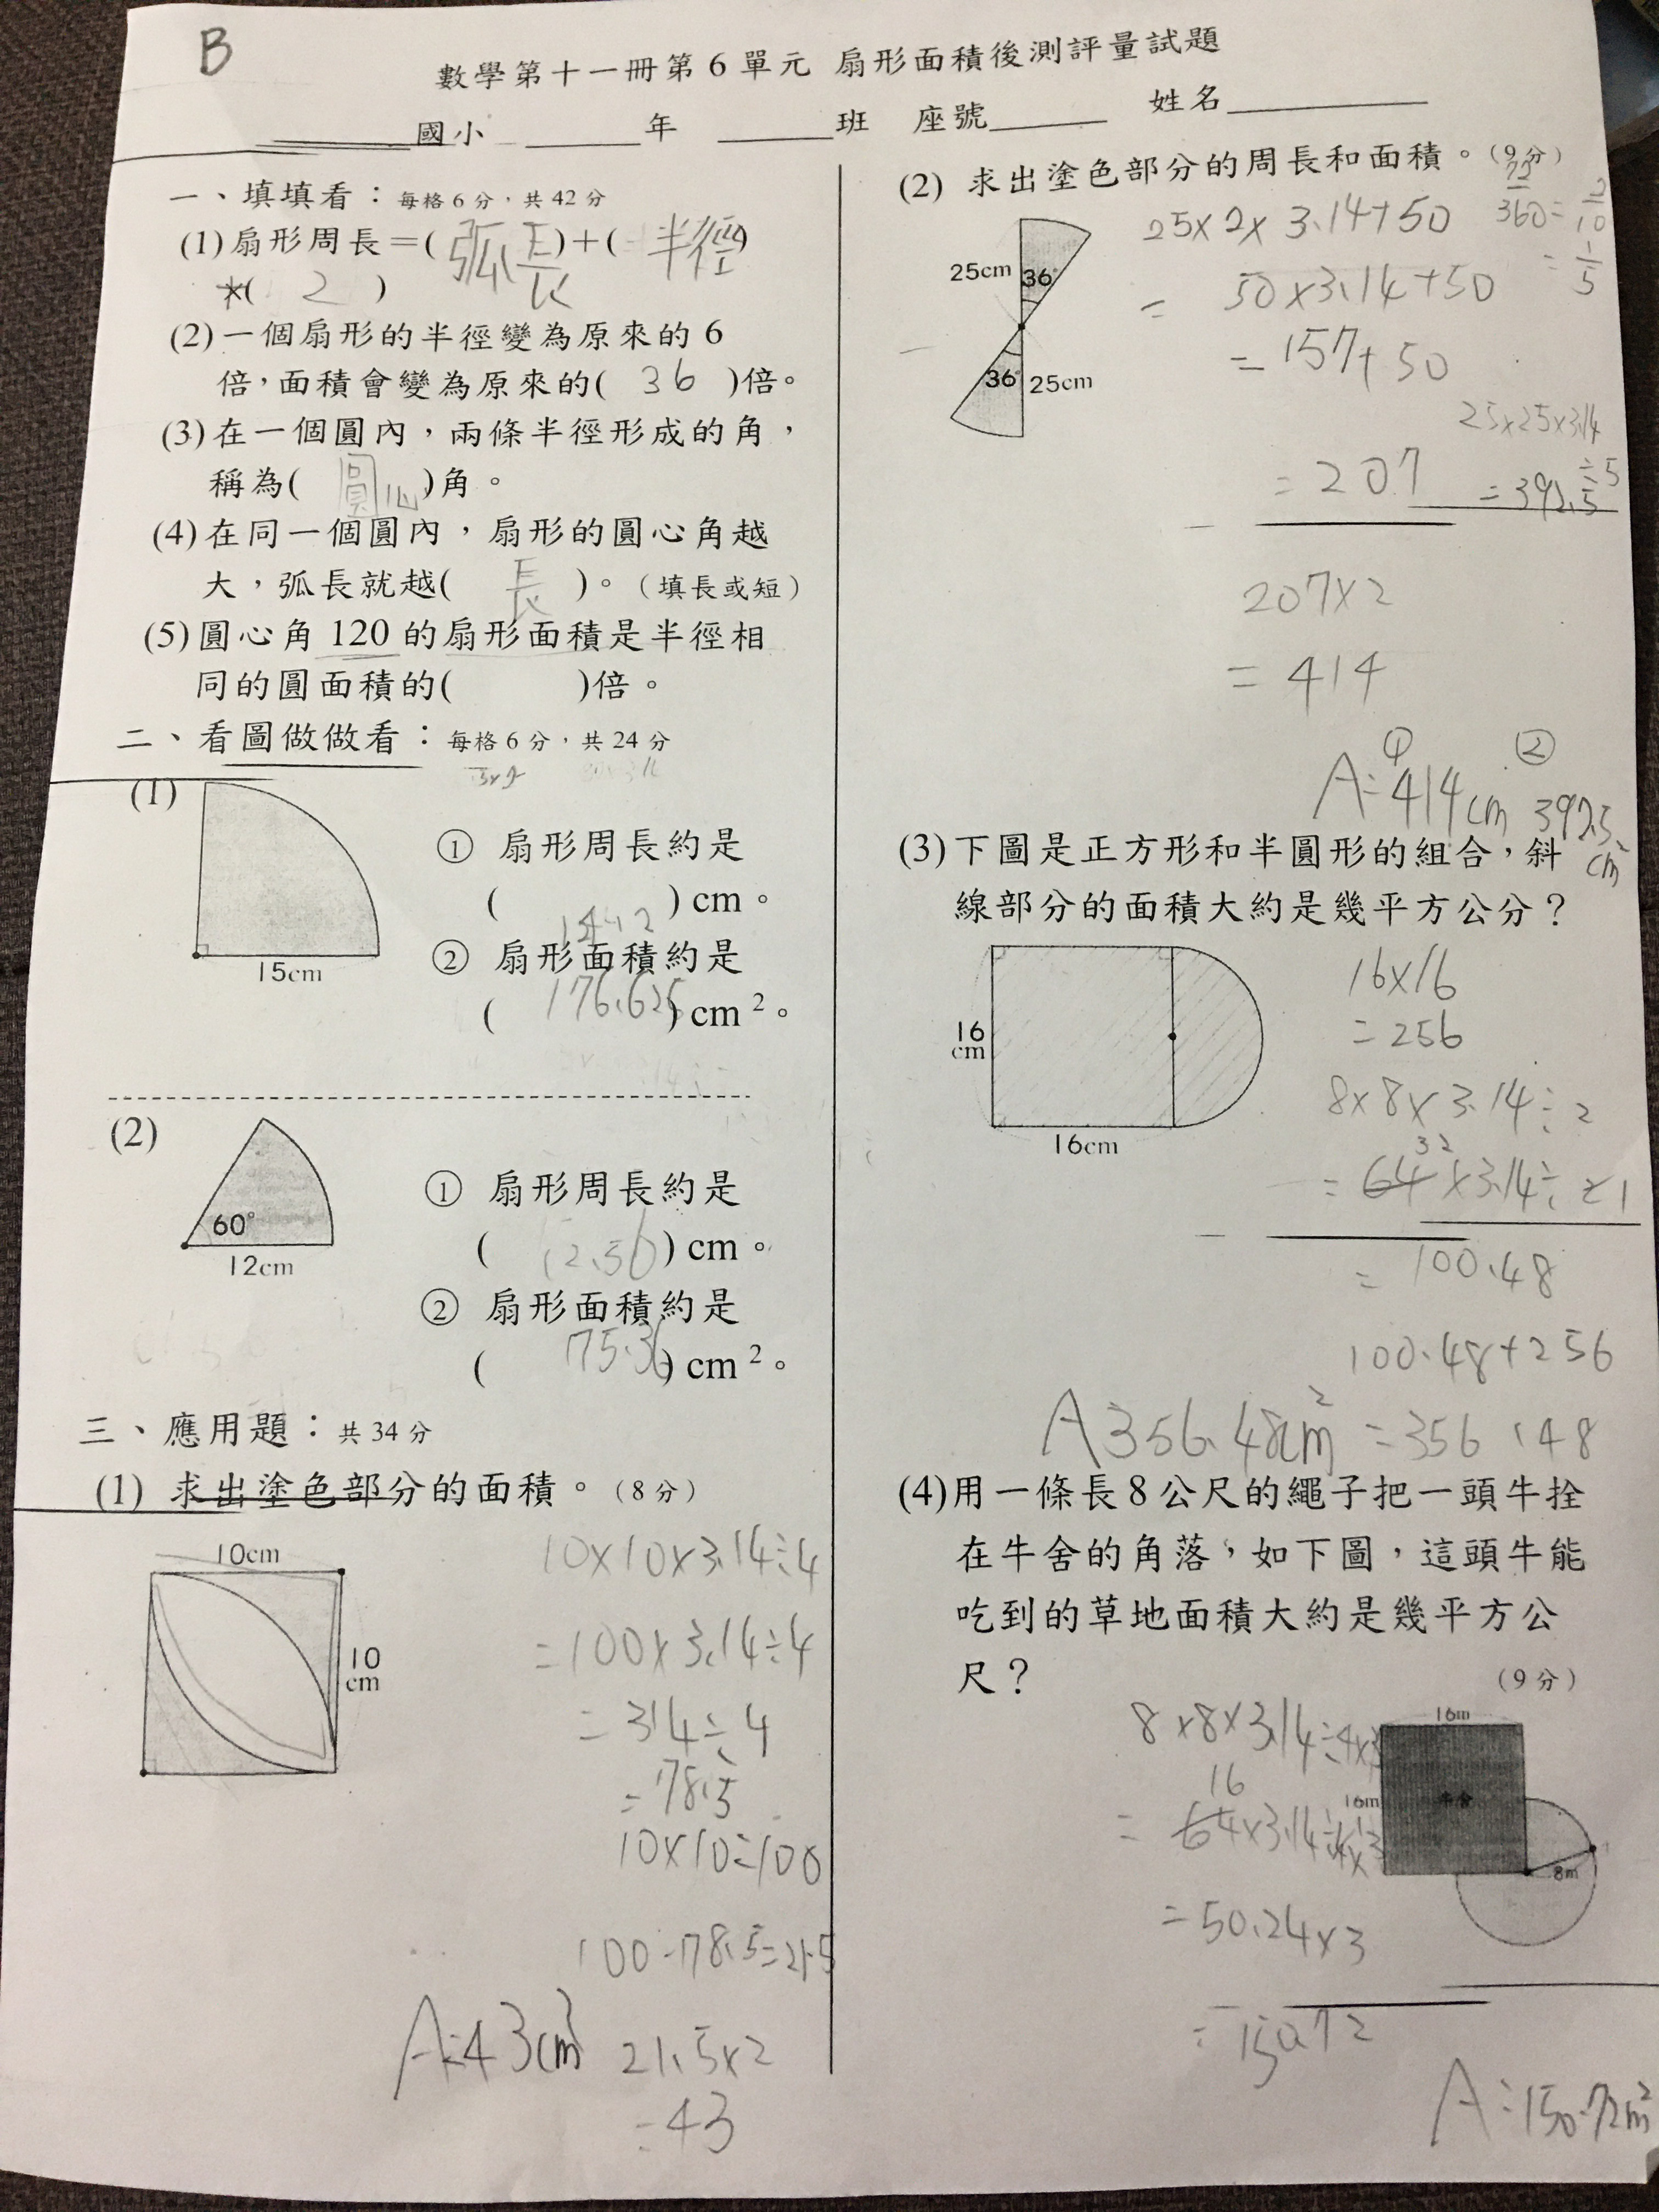 B
數學第十一冊第6單元 扇形面積後測評量試題
國小 年 班 座號 姓名
一、填填看：每格6分，共42分
(1)扇形周長=(弧長)+(半徑)
*(2)
(2)一個扇形的半徑變為原來的6
倍，面積會變為原來的(36)倍。
(3)在一個圓內，兩條半徑形成的角，
稱為(圓心)角。
(4)在同一個圓內，扇形的圓心角越
大，弧長就越(長)。（填長或短）
(5)圓心角120的扇形面積是半徑相
同的圓面積的( )倍。
二、看圖做做看：每格6分，共24分
(1)
15cm
① 扇形周長約是
( ) cm。
② 扇形面積約是
(176.625) cm²。
(2)
60°
12cm
① 扇形周長約是
(12.56) cm。
② 扇形面積約是
(75.36) cm²。
三、應用題：共34分
(1) 求出塗色部分的面積。（8分）
10cm
10
cm
10×10×3.14÷4
=100×3.14÷4
=314÷4
=78.5
10×10=100
100-78.5=21.5
21.5×2
=43
A:43cm²
(2) 求出塗色部分的周長和面積。（9分）
25cm 36°
36° 25cm
25×2×3.14+50
72/360=2/10
=1/5
= 50×3.14+50
=157+50
=207
25×25×3.14
÷5
=392.5
207×2
=414
A:①414cm ②392.5
cm²
(3)下圖是正方形和半圓形的組合，斜
線部分的面積大約是幾平方公分？
16
cm
16cm
16×16
=256
8×8×3.14÷2
32
=64×3.14÷2 1
=100.48
100.48+256
=356.48
A356.48cm²
(4)用一條長8公尺的繩子把一頭牛拴
在牛舍的角落，如下圖，這頭牛能
吃到的草地面積大約是幾平方公
尺？（9分）
16m
16m
牛舍
8m
8×8×3.14÷4×3
16
=64×3.14÷4×3
=50.24×3
=150.72
A:150.72m²